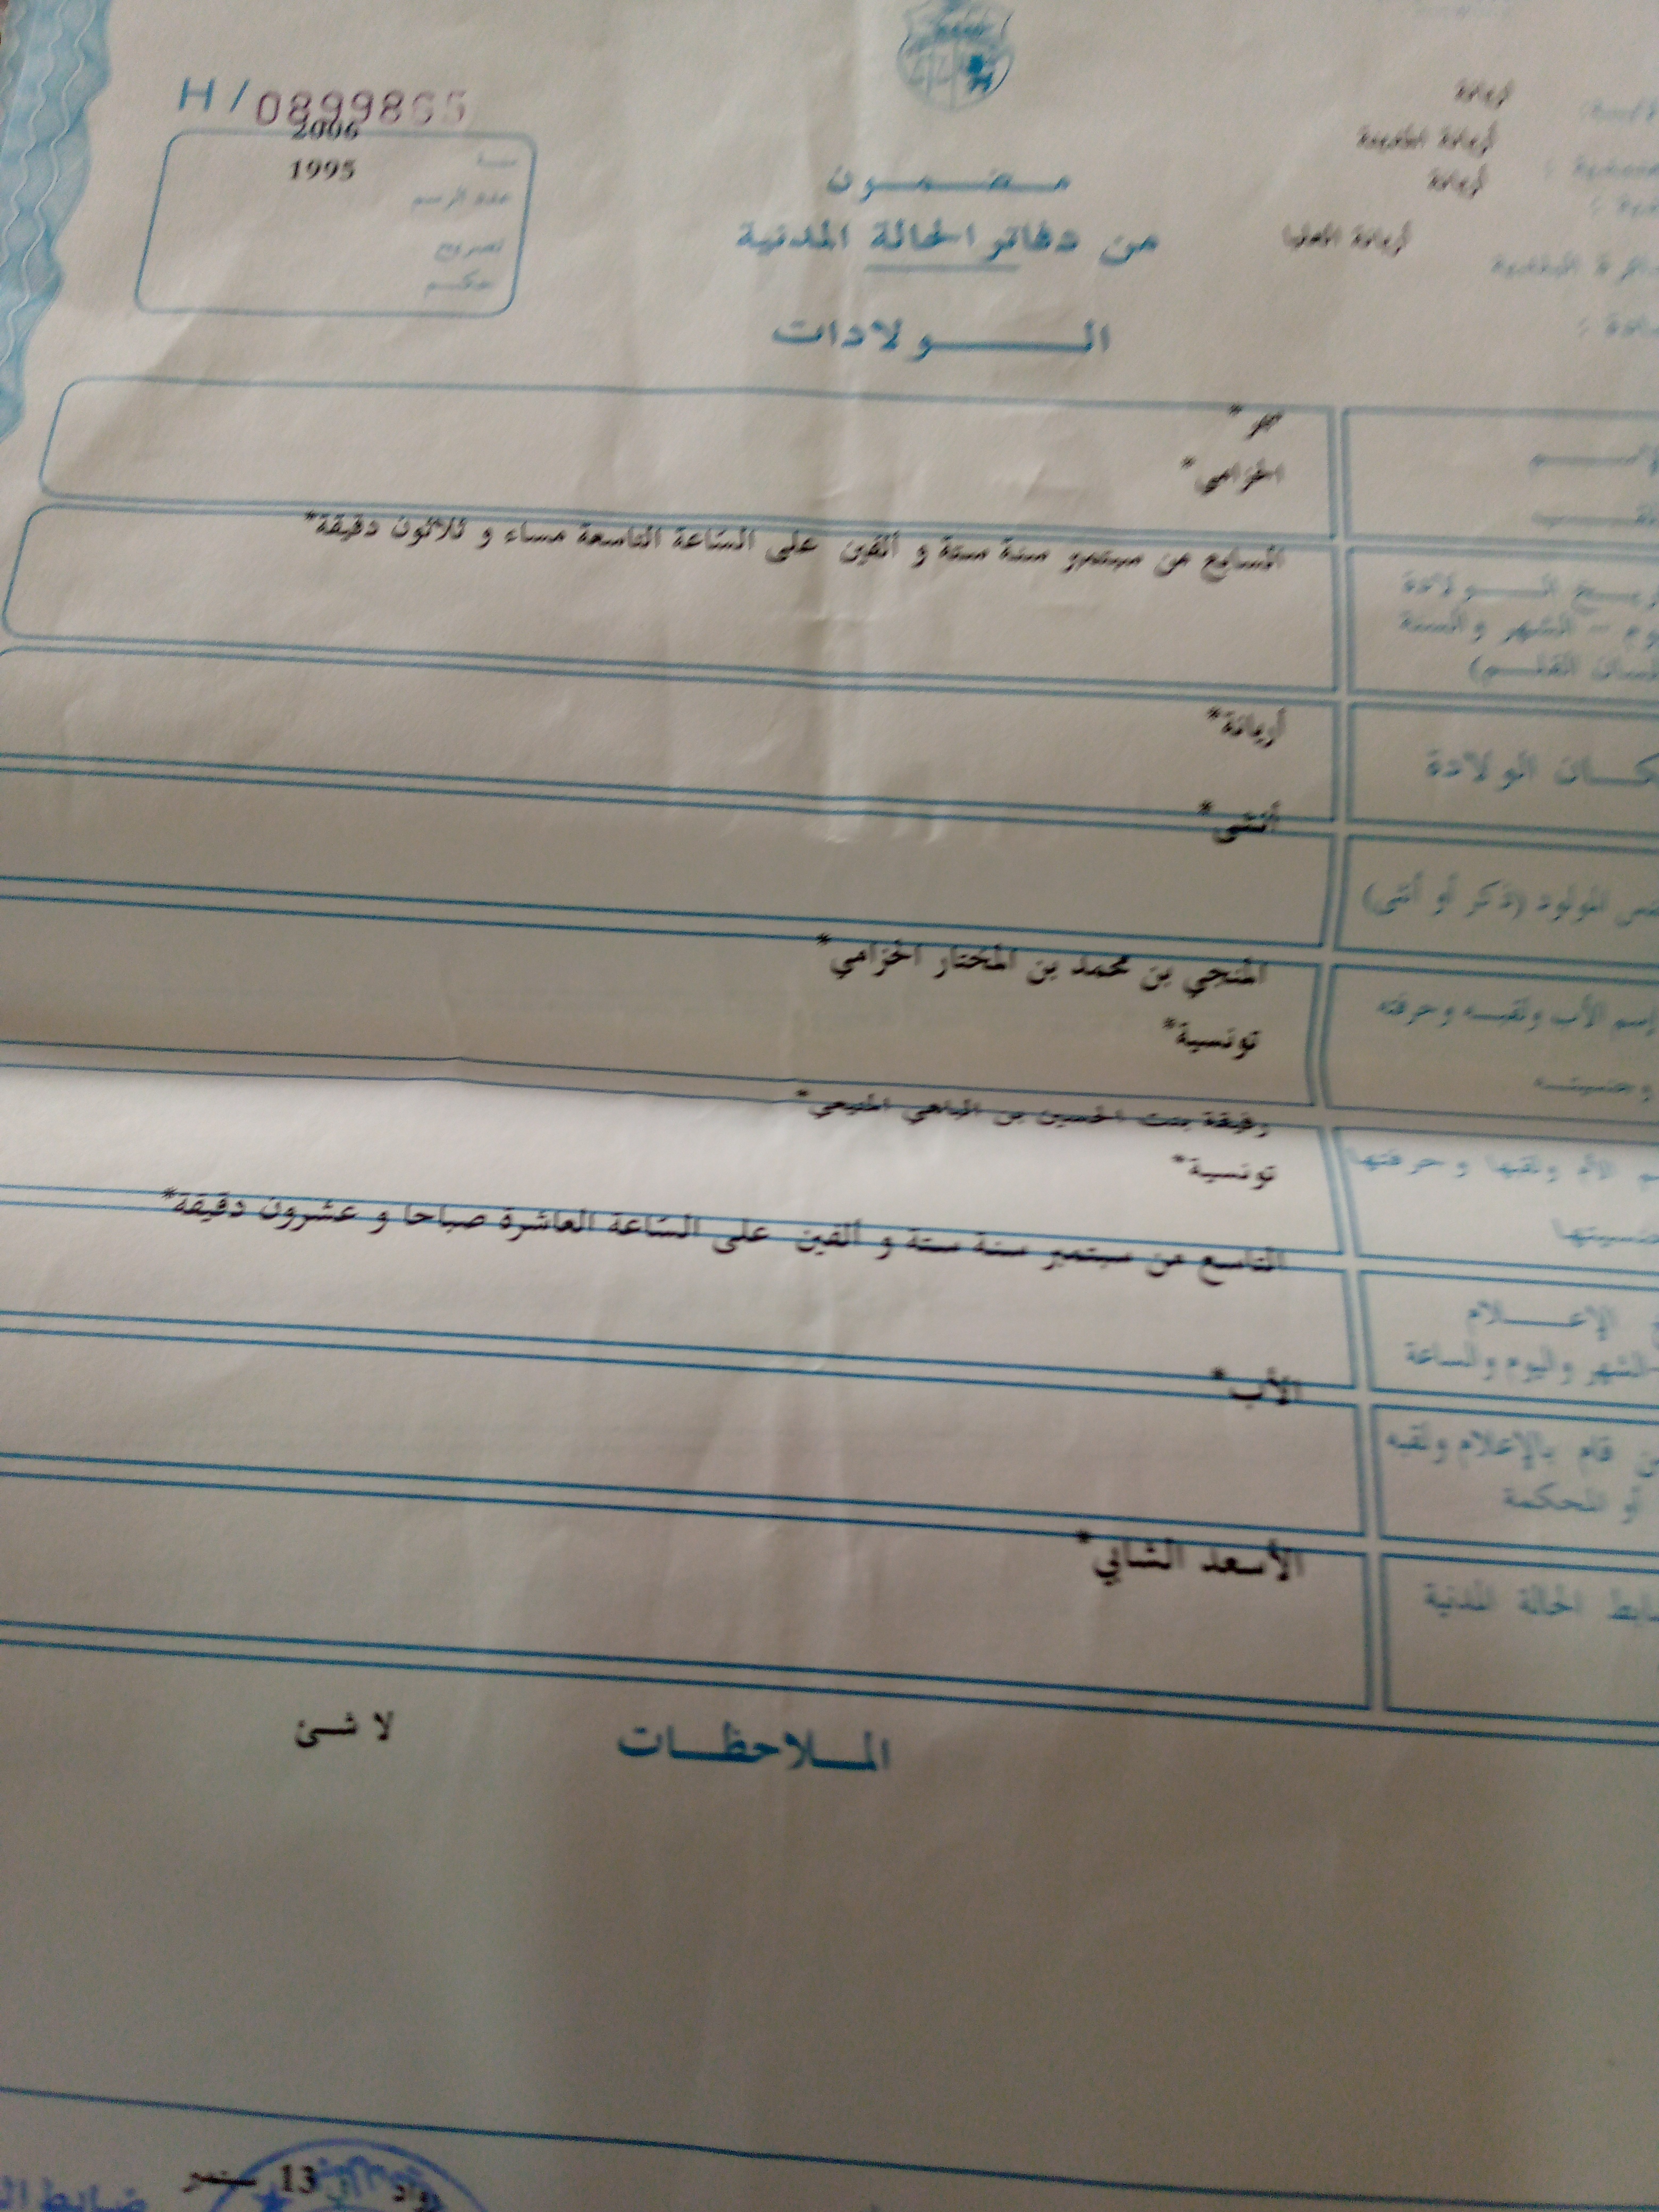 H/ 08998
2006
1995
سنة
عدد الرسم
تصريح
حكم
أريانة
أريانة المدينة
أريانة
أريانة العليا
مضمون
من دفاتر الحالة المدنية
الولادات
الخزامي*
السابع من سبتمبر سنة ستة و ألفين على الساعة التاسعة مساء و ثلاثون دقيقة*
الولادة
الشهر والسنة
القلم)
أريانة*
الولادة
أنثى*
المولود (ذكر أو أنثى)
المنجي بن محمد بن المختار الخزامي*
إسم الأب ولقبه وحرفته
تونسية*
وجنسيته
بنت الحسين بن
الأم ولقبها وحرفتها
تونسية*
التاسع من سبتمبر سنة ستة و ألفين على الساعة العاشرة صباحا و عشرون دقيقة*
الإعلام
الشهر واليوم والساعة
الأب*
قام بالإعلام ولقبه
أو المحكمة
الأسعد الشابي*
الحالة المدنية
الملاحظات لا شئ
13 سبتمبر